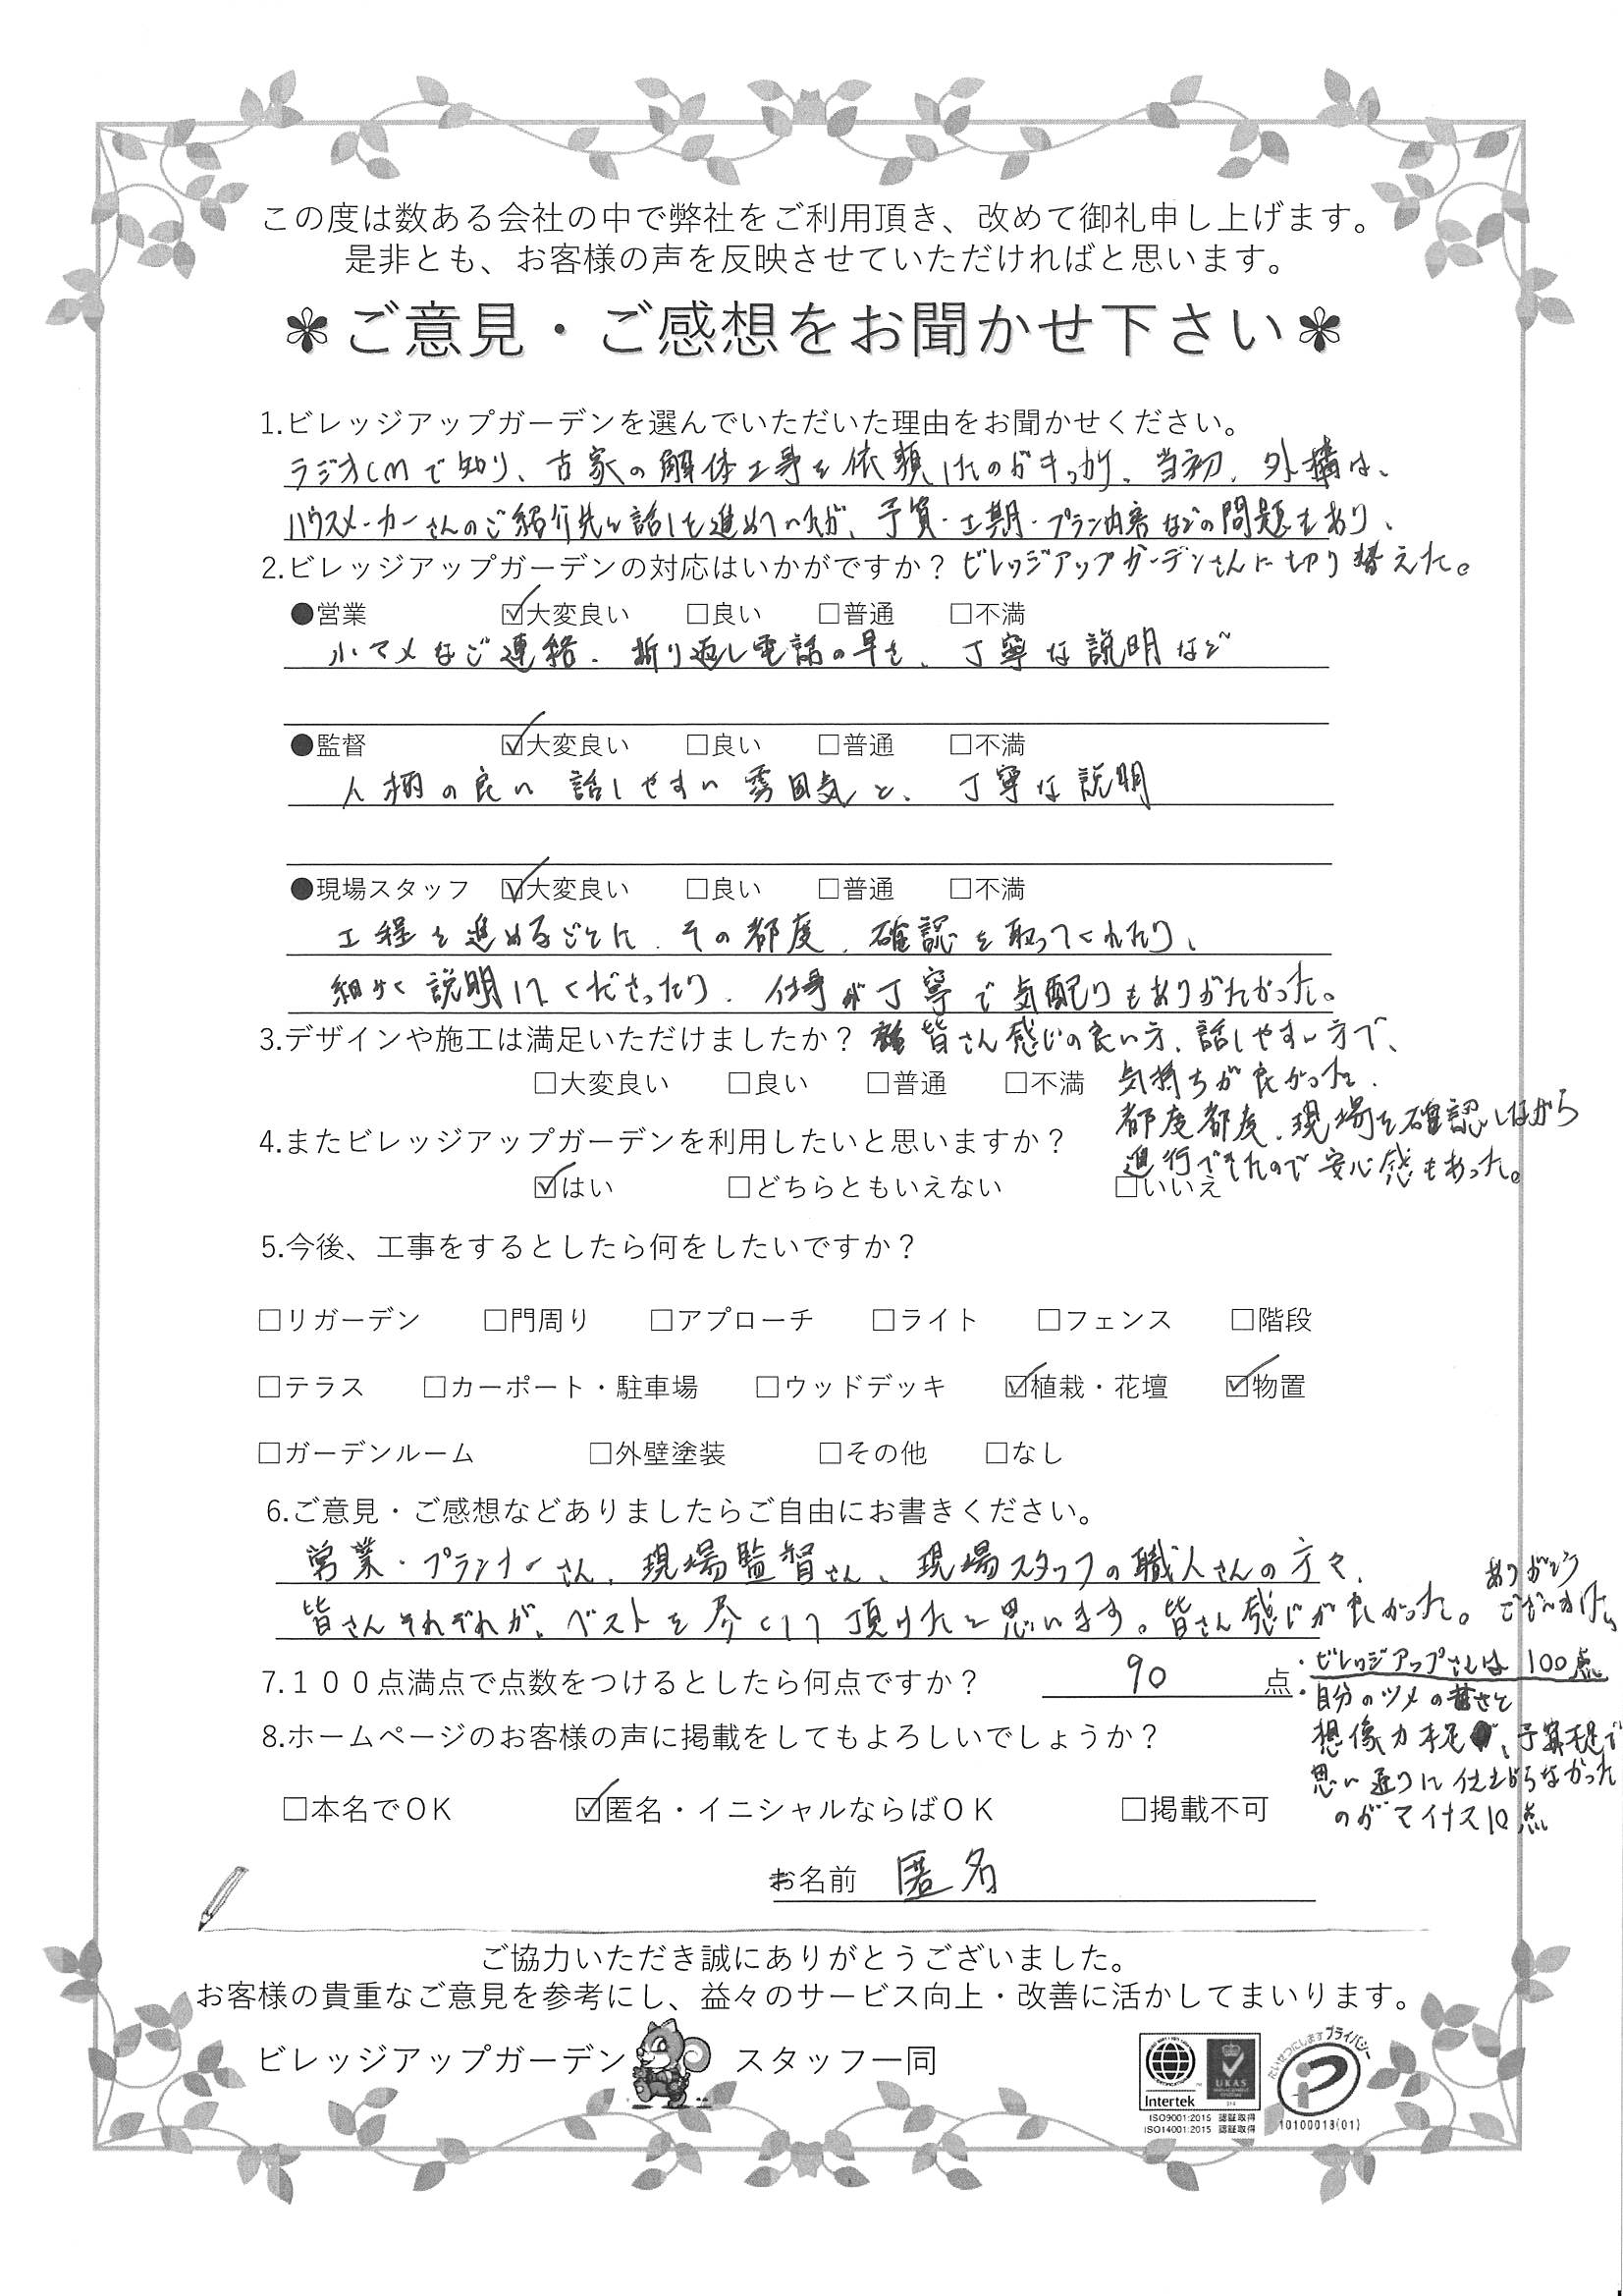 この度は数ある会社の中で弊社をご利用頂き、改めて御礼申し上げます。
是非とも、お客様の声を反映させていただければと思います。
ご意見・ご感想をお聞かせ下さい
1.ビレッジアップガーデンを選んでいただいた理由をお聞かせください。
ラジオCMで知り、古家の解体工事を依頼したのがキッカケ。当初、外構は、
ハウスメーカーさんのご紹介先と話しを進めていたが、予算・工期・プラン内容などの問題もあり、
ビレッジアップガーデンさんに切り替えた。
2.ビレッジアップガーデンの対応はいかがですか？
●営業 ☑大変良い □良い □普通 □不満
小マメなご連絡、折り返し電話の早さ、丁寧な説明など
●監督 ☑大変良い □良い □普通 □不満
人柄の良い話しやすい雰囲気と、丁寧な説明
●現場スタッフ ☑大変良い □良い □普通 □不満
工程を進めるごとに、その都度、確認を取ってくれたり、
細かく説明してくださったり、仕事が丁寧で気配りもありがたかった。
皆さん感じの良い方、話しやすい方で、
気持ちが良かった。
都度都度、現場を確認しながら
進行できたので安心感もあった。
3.デザインや施工は満足いただけましたか？
□大変良い □良い □普通 □不満
4.またビレッジアップガーデンを利用したいと思いますか？
☑はい □どちらともいえない □いいえ
5.今後、工事をするとしたら何をしたいですか？
□リガーデン □門周り □アプローチ □ライト □フェンス □階段
□テラス □カーポート・駐車場 □ウッドデッキ ☑植栽・花壇 ☑物置
□ガーデンルーム □外壁塗装 □その他 □なし
6.ご意見・ご感想などありましたらご自由にお書きください。
営業・プランナーさん、現場監督さん、現場スタッフの職人さんの方々、
皆さんそれぞれが、ベストを尽くして頂けたと思います。皆さん感じが良かった。
ありがとう
ございました。
7.１００点満点で点数をつけるとしたら何点ですか？ 90 点
・ビレッジアップさんは100点
・自分のツメの甘さと
想像力不足、予算不足で
思い通りに仕上がらなかった
のがマイナス10点
8.ホームページのお客様の声に掲載をしてもよろしいでしょうか？
□本名でＯＫ ☑匿名・イニシャルならばＯＫ □掲載不可
お名前 匿名
ご協力いただき誠にありがとうございました。
お客様の貴重なご意見を参考にし、益々のサービス向上・改善に活かしてまいります。
ビレッジアップガーデン スタッフ一同
Intertek
UKAS
ISO9001:2015 認証取得
ISO14001:2015 認証取得
たいせつにします プライバシー
10100018(01)